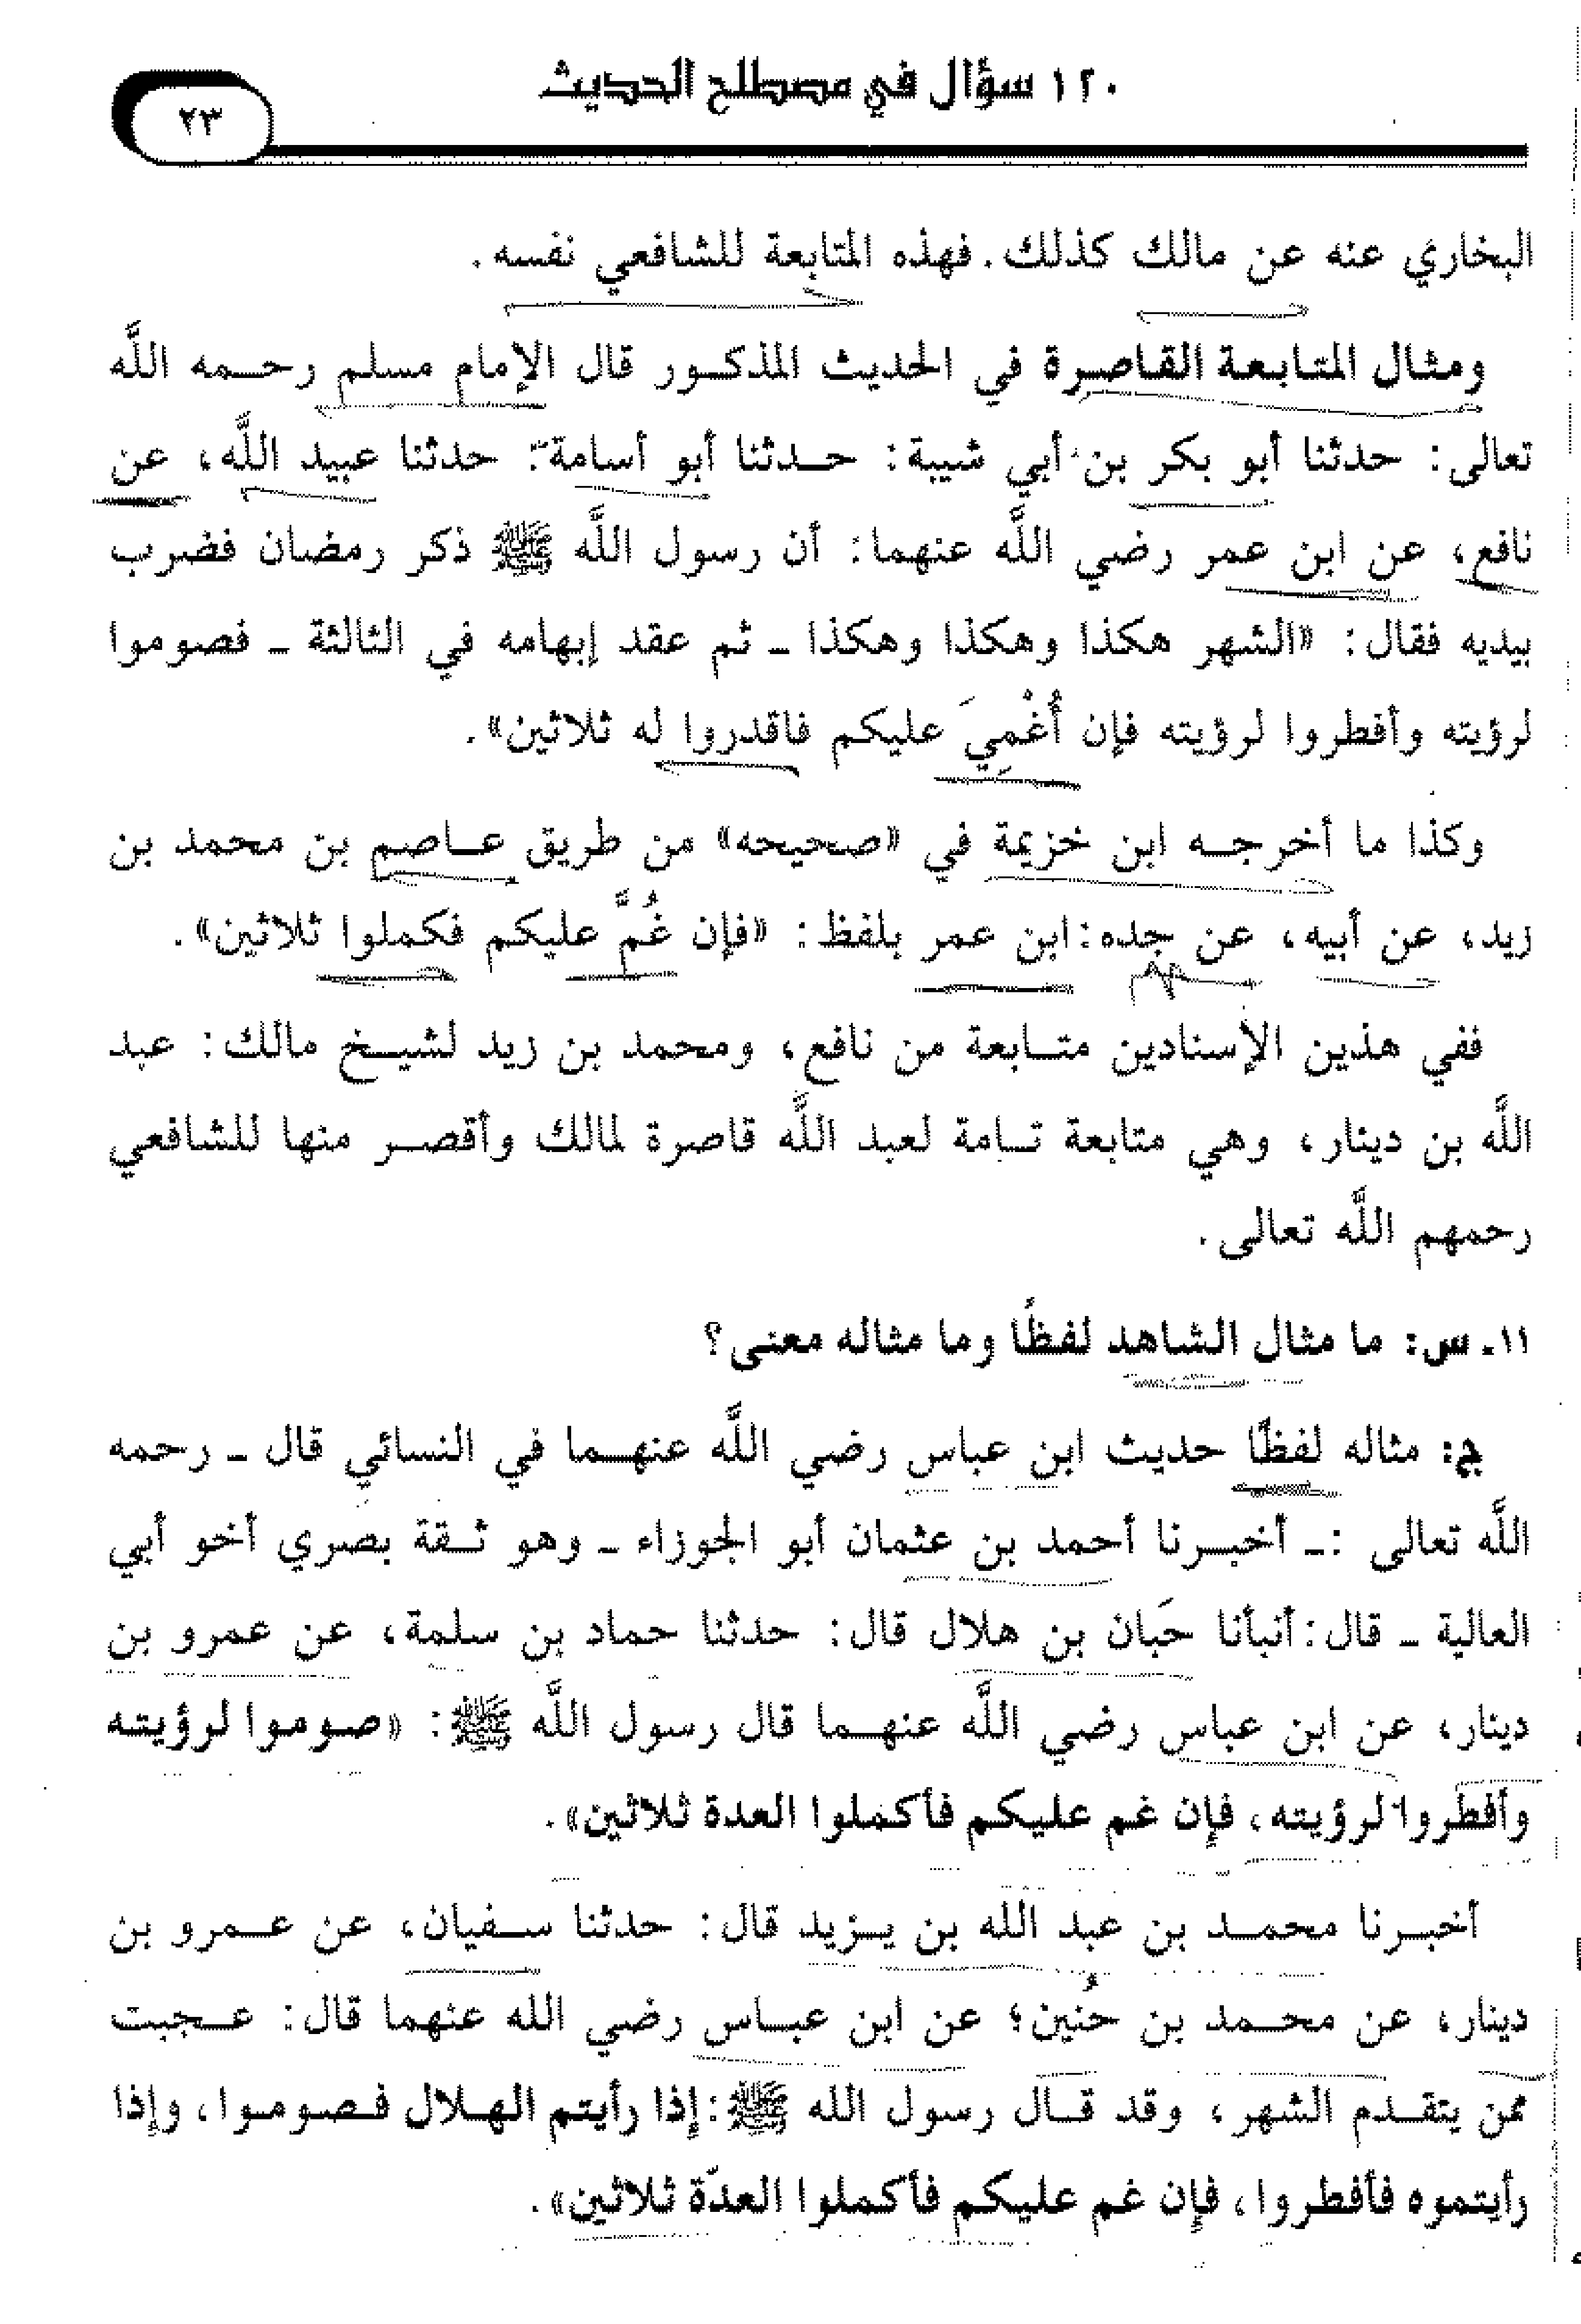 ١٢٠ سؤال في مصطلح الحديث
٢٣
البخاري عنه عن مالك كذلك. فهذه المتابعة للشافعي نفسه.
ومثال المتابعة القاصرة في الحديث المذكور قال الإمام مسلم رحمه اللَّه
تعالى: حدثنا أبو بكر بن أبي شيبة: حدثنا أبو أسامة: حدثنا عبيد اللَّه، عن
نافع، عن ابن عمر رضي اللَّه عنهما: أن رسول اللَّه ﷺ ذكر رمضان فضرب
بيديه فقال: «الشهر هكذا وهكذا وهكذا ـ ثم عقد إبهامه في الثالثة ـ فصوموا
لرؤيته وأفطروا لرؤيته فإن أُغْمِيَ عليكم فاقدروا له ثلاثين».
وكذا ما أخرجه ابن خزيمة في «صحيحه» من طريق عاصم بن محمد بن
زيد، عن أبيه، عن جده: ابن عمر بلفظ: «فإن غُمَّ عليكم فكملوا ثلاثين».
ففي هذين الإسنادين متابعة من نافع، ومحمد بن زيد لشيخ مالك: عبد
اللَّه بن دينار، وهي متابعة تامة لعبد اللَّه قاصرة لمالك وأقصر منها للشافعي
رحمهم اللَّه تعالى.
١١ـ س: ما مثال الشاهد لفظًا وما مثاله معنى؟
ج: مثاله لفظًا حديث ابن عباس رضي اللَّه عنهما في النسائي قال ـ رحمه
اللَّه تعالى :ـ أخبرنا أحمد بن عثمان أبو الجوزاء ـ وهو ثقة بصري أخو أبي
العالية ـ قال: أنبأنا حَبان بن هلال قال: حدثنا حماد بن سلمة، عن عمرو بن
دينار، عن ابن عباس رضي اللَّه عنهما قال رسول اللَّه ﷺ: «صوموا لرؤيته
وأفطروا لرؤيته، فإن غم عليكم فأكملوا العدة ثلاثين».
أخبرنا محمد بن عبد الله بن يزيد قال: حدثنا سفيان، عن عمرو بن
دينار، عن محمد بن حُنين؛ عن ابن عباس رضي الله عنهما قال: عجبت
ممن يتقدم الشهر، وقد قال رسول الله ﷺ: إذا رأيتم الهلال فصوموا، وإذا
رأيتموه فأفطروا، فإن غم عليكم فأكملوا العدّة ثلاثين».